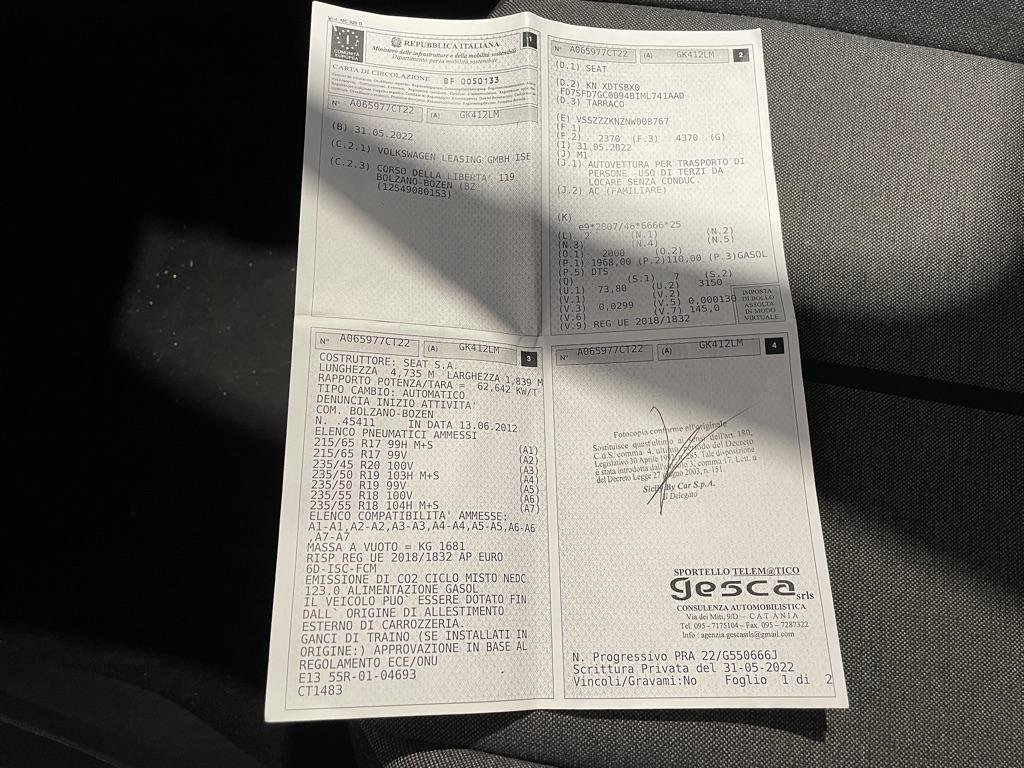 Mod. MC 820 D
COMUNITÀ
EUROPEA
REPUBBLICA ITALIANA
Ministero delle infrastrutture e della mobilità sostenibili
Dipartimento per la mobilità sostenibile
1
CARTA DI CIRCOLAZIONE
0050133
N° A065977CT22 (A) GK412LM
(B) 31.05.2022
(C.2.1) VOLKSWAGEN LEASING GMBH ISE
(C.2.3) CORSO DELLA LIBERTA' 119
BOLZANO-BOZEN (BZ
(12549080153)
N° A065977CT22 (A) GK412LM 2
(D.1) SEAT
(D.2) KN XDTSBX0
FD7SFD7GC0094BIML741AAD
(D.3) TARRACO
(E) VSSZZZKNZNW008767
(F.1)
(F.2) 2370 (F.3) 4370 (G)
(I) 31.05.2022
(J) M1
(J.1) AUTOVETTURA PER TRASPORTO DI
PERSONE -USO DI TERZI DA
LOCARE SENZA CONDUC.
(J.2) AC (FAMILIARE)
(K)
e9*2007/46*6666*25
(L) 2 (N.1) (N.2)
(N.3) (N.4) (N.5)
(O.1) 2000 (O.2)
(P.1) 1968,00 (P.2)110,00 (P.3)GASOL
(P.5) DTS
(Q) (S.1) 7 (S.2)
(U.1) 73,80 (U.2) 3150
(V.1) (V.2)
(V.3) 0,0299 (V.5) 0,000130
(V.6) (V.7) 145,0
(V.9) REG UE 2018/1832
IMPOSTA
DI BOLLO
ASSOLTA
IN MODO
VIRTUALE
N° A065977CT22 (A) GK412LM 3
COSTRUTTORE: SEAT S.A.
LUNGHEZZA 4,735 M LARGHEZZA 1,839 M
RAPPORTO POTENZA/TARA = 62,642 KW/T
TIPO CAMBIO: AUTOMATICO
DENUNCIA INIZIO ATTIVITA'
COM. BOLZANO-BOZEN
N. .45411 IN DATA 13.06.2012
ELENCO PNEUMATICI AMMESSI
215/65 R17 99H M+S (A1)
215/65 R17 99V (A2)
235/45 R20 100V (A3)
235/50 R19 103H M+S (A4)
235/50 R19 99V (A5)
235/55 R18 100V (A6)
235/55 R18 104H M+S (A7)
ELENCO COMPATIBILITA' AMMESSE:
A1-A1,A2-A2,A3-A3,A4-A4,A5-A5,A6-A6
,A7-A7
MASSA A VUOTO = KG 1681
RISP REG UE 2018/1832 AP EURO
6D-ISC-FCM
EMISSIONE DI CO2 CICLO MISTO NEDC
123.0 ALIMENTAZIONE GASOL
IL VEICOLO PUO` ESSERE DOTATO FIN
DALL` ORIGINE DI ALLESTIMENTO
ESTERNO DI CARROZZERIA.
GANCI DI TRAINO (SE INSTALLATI IN
ORIGINE:) APPROVAZIONE IN BASE AL
REGOLAMENTO ECE/ONU
E13 55R-01-04693
CT1483
N° A065977CT22 (A) GK412LM 4
Fotocopia conforme all'originale
Sostituisce quest'ultimo ai sensi dell'art. 180,
C.d.S. comma 4, ultimo periodo del Decreto
Legislativo 30 Aprile n. 285. Tale disposizione
è stata introdotta dall'articolo 3, comma 17, Lett. a
del Decreto Legge 27 giugno 2003, n. 151.
Sicily By Car S.p.A.
Il Delegato
SPORTELLO TELEM@TICO
gesca srls
CONSULENZA AUTOMOBILISTICA
Via dei Miti, 9/D – CATANIA
Tel. 095 - 7175104 – Fax. 095 – 7287322
Info : agenzia.gescasrls@gmail.com
N. Progressivo PRA 22/G550666J
Scrittura Privata del 31-05-2022
Vincoli/Gravami:No Foglio 1 di 2